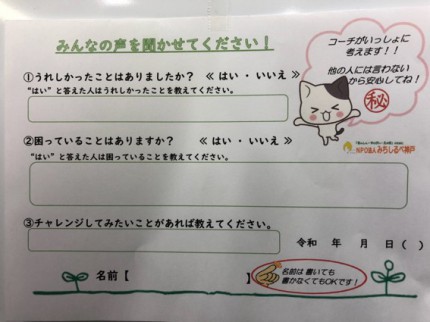 みんなの声を聞かせてください！
コーチがいっしょに
考えます！！
他の人には言わない
から安心してね！
㊙
①うれしかったことはありましたか？ 《 はい ・ いいえ 》
“はい”と答えた人はうれしかったことを教えてください。
②困っていることはありますか？ 《 はい ・ いいえ 》
“はい”と答えた人は困っていることを教えてください。
NPO法人 みちしるべ神戸
③チャレンジしてみたいことがあれば教えてください。
令和 年 月 日（ ）
名前【 】
名前は書いても
書かなくてもOKです！